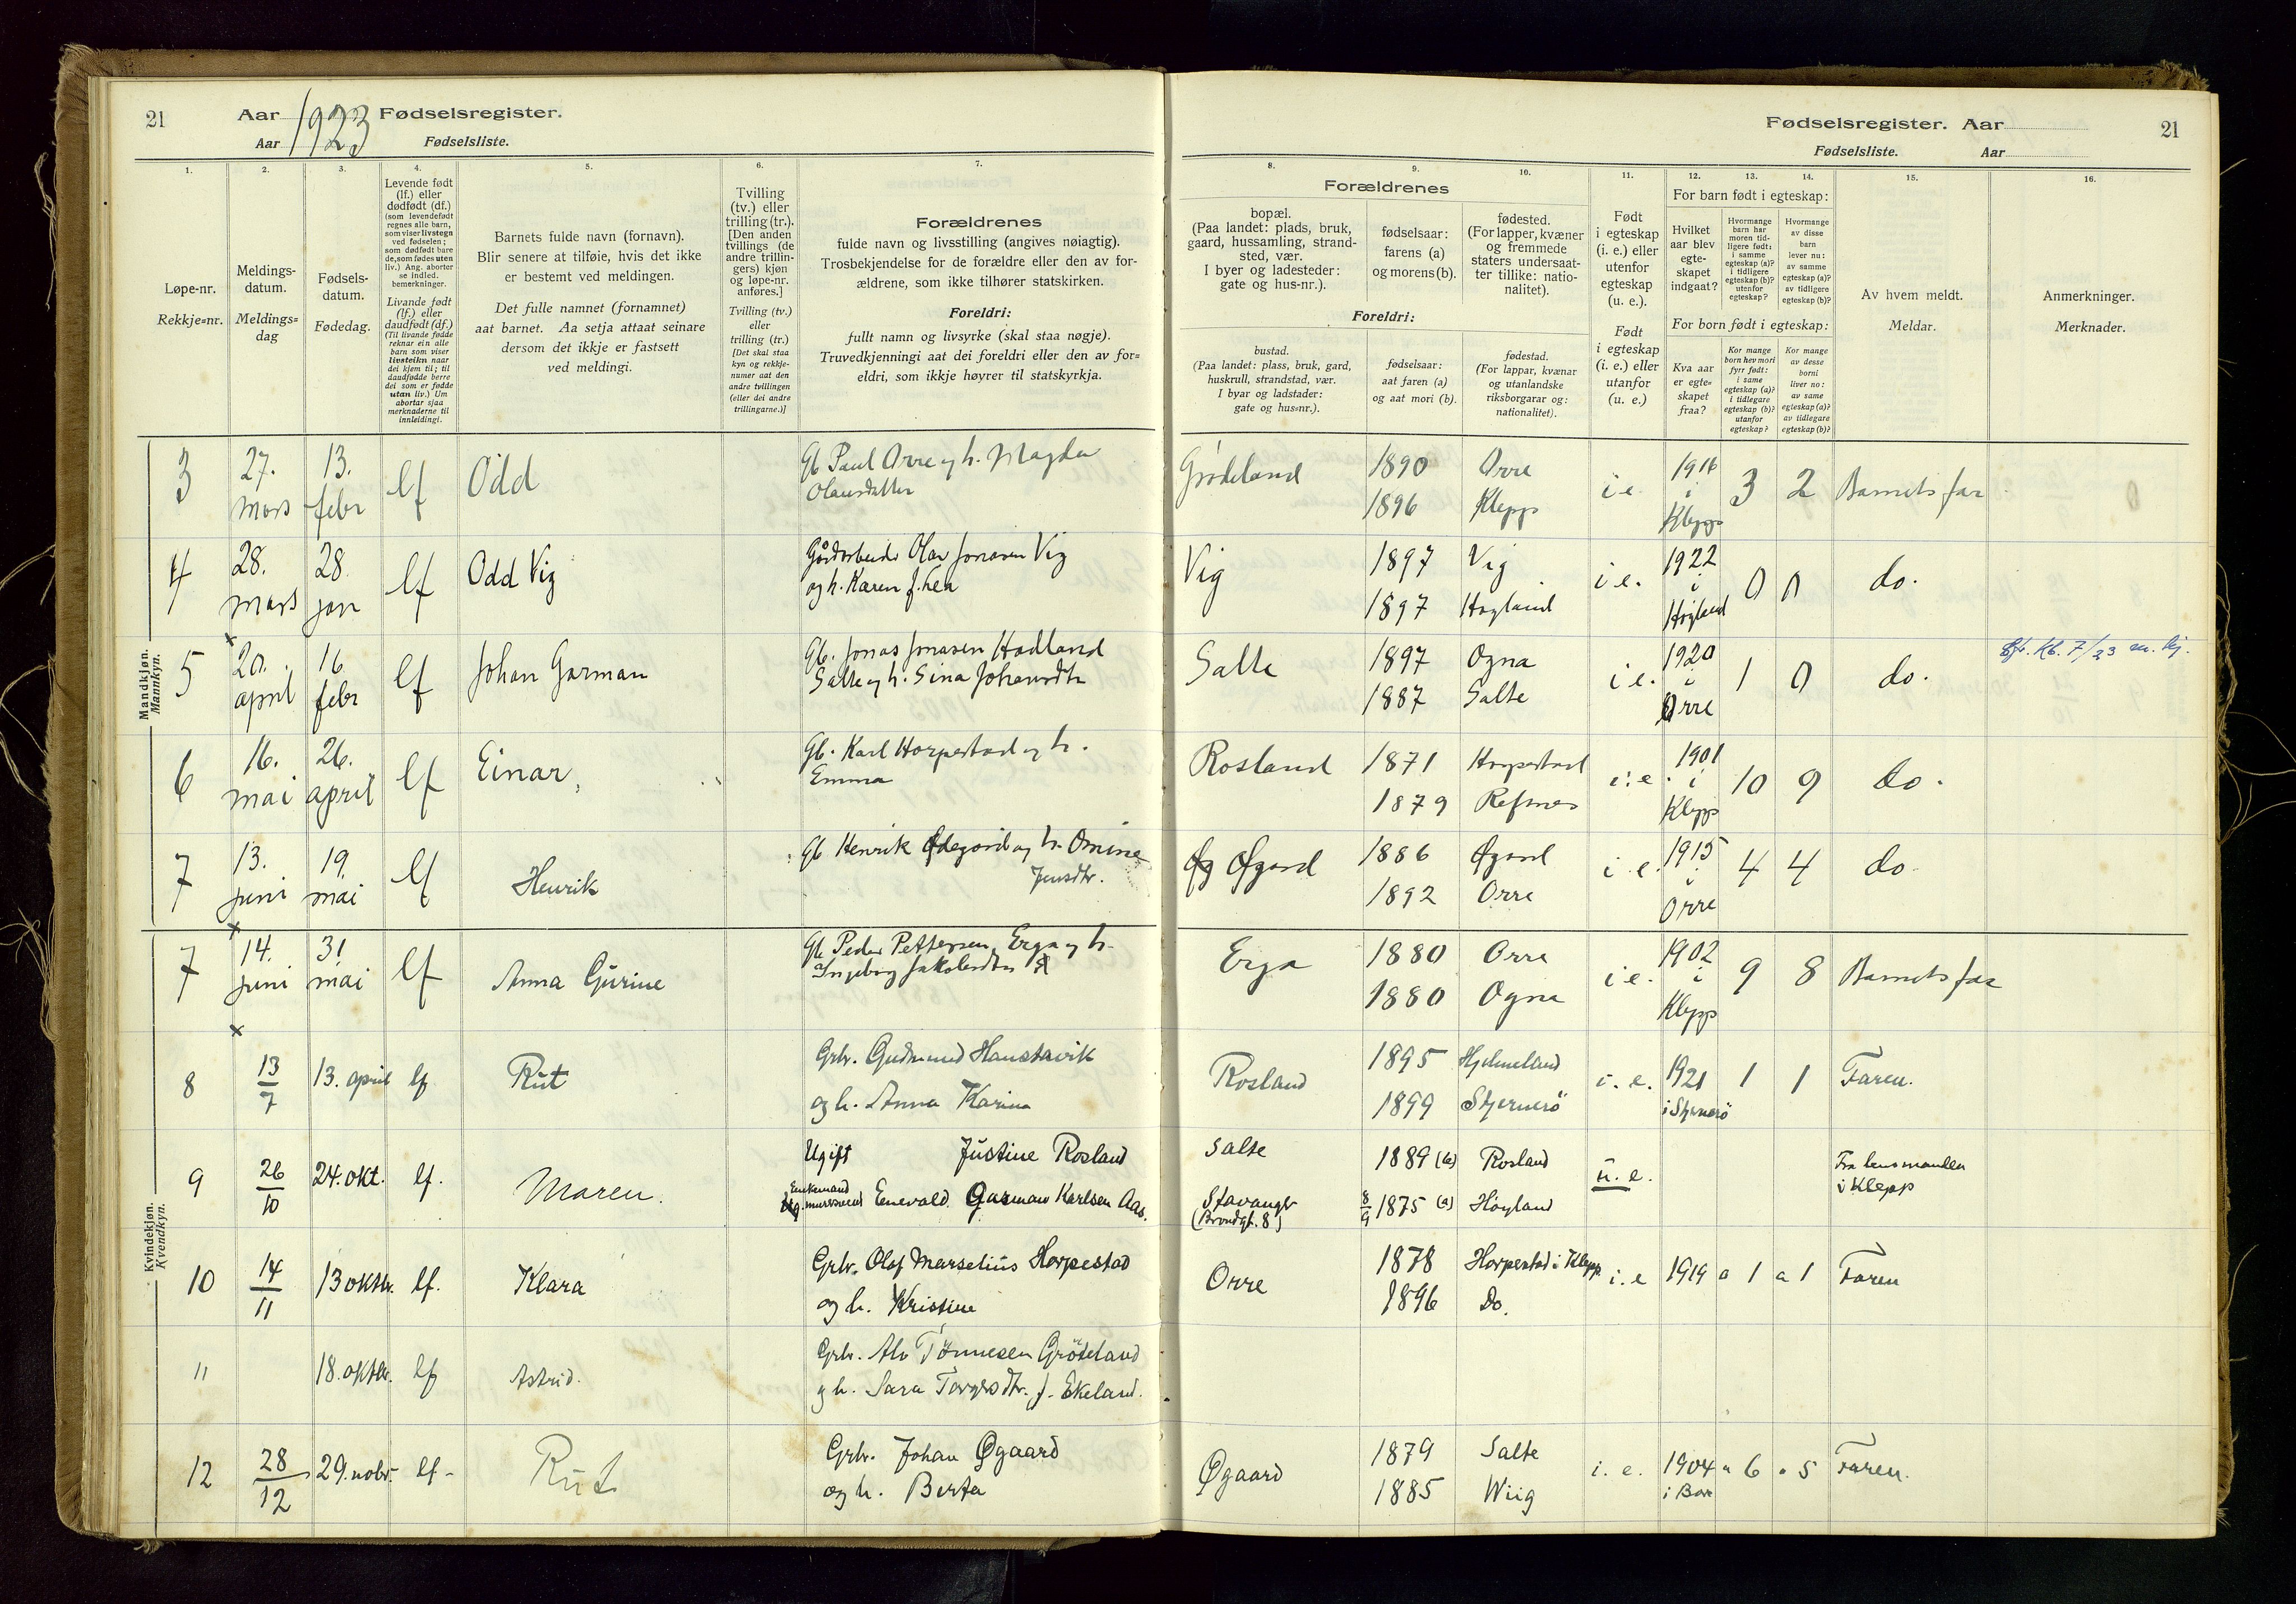 21
Aar 1923 Fødselsregister.
Aar Fødselsliste.
1.
2.
3.
4.
5.
6.
7.
Løpe-nr.
Rekkje=nr.
Meldings-
datum.
Meldings=
dag
Fødsels-
datum.
Fødedag.
Levende født
(lf.) eller
dødfødt (df.)
(som levendefødt
regnes alle barn,
som viser livstegn
ved fødselen;
som dødfødt bare
de, som fødes uten
liv.) Ang. aborter
se indled.
bemerkninger.
Livande født
(lf.) eller
daudfødt (df.)
(Til livande fødde
reknar ein alle
barn som viser
livsteikn naar
dei kjem til; til
daudfødde berre
dei som er fødde
utan liv.) Um
abortar sjaa
merknaderne til
innleidingi.
Barnets fulde navn (fornavn).
Blir senere at tilføie, hvis det ikke
er bestemt ved meldingen.
Det fulle namnet (fornamnet)
aat barnet. Aa setja attaat seinare
dersom det ikkje er fastsett
ved meldingi.
Tvilling
(tv.) eller
trilling (tr.).
[Den anden
tvillings (de
andre trillin-
gers) kjøn
og løpe-nr.
anføres.]
Tvilling (tv.)
eller
trilling (tr.)
[Det skal staa
kyn og rekkje-
numer aat den
andre tvillingen
(eller dei andre
trillingarne.)]
Forældrenes
fulde navn og livsstilling (angives nøiagtig).
Trosbekjendelse for de forældre eller den av for-
ældrene, som ikke tilhører statskirken.
Foreldri:
fullt namn og livsyrke (skal staa nøgje).
Truvedkjenningi aat dei foreldri eller den av for=
eldri, som ikkje høyrer til statskyrkja.
Mandkjøn.
Mannkyn.
3 27. mars 13. febr lf Odd Gb Paul Orre og h. Magda
Olausdatter
4 28. mars 28 jan lf Odd Vig Gårdarbeider Olav Jonasen Vig
og h. Karen f. Lea
5 20. april 16 febr lf Johan Garman Gb. Jonas Jonasen Hadland
Salte og h. Sina Johansdtr
6 16. mai 26. april lf Einar Gb. Karl Horpestad og h.
Emma
7 13. juni 19. mai lf Henrik Gb Henrik Ødegård og h. Omine
Jensdtr.
Kvindekjøn.
Kvendkyn.
7 14. juni 31 mai lf Anna Gurine Gb Peder Pettersen Erga og h.
Ingeborg Jakobsdtr
8 13/7 13. april lf Rut Grbr. Gudmund Haustavik
og h. Anna Karina
9 26/10 24. okt. lf. Maren. Ugift Justine Rosland
Enkemand murersvend Enevald Garman Karlsen Aas.
10 14/11 13 oktbr. lf. Klara Grbr. Olaf Marselius Horpestad
og h. Kristine
11 18. oktbr. lf Astrid. Grbr. Alv Tönnesen Grödeland
og h. Sara Torgersdtr. f. Ekeland.
12 28/12 29. nobr. lf. Rut Grbr. Johan Øgaard
og h. Berta
Fødselsregister. Aar 21
Fødselsliste. Aar
8.
9.
10.
11.
12.
13.
14.
15.
16.
Forældrenes
bopæl.
(Paa landet: plads, bruk,
gaard, hussamling, strand-
sted, vær.
I byer og ladesteder:
gate og hus-nr.).
fødselsaar:
farens (a)
og morens (b).
fødested.
(For lapper, kvæner
og fremmede
staters undersaat-
ter tillike: natio-
nalitet).
Foreldri:
bustad.
(Paa landet: plass, bruk, gard,
huskrull, strandstad, vær.
I byar og ladstader:
gate og hus=nr.).
fødselsaar:
aat faren (a)
og aat mori (b).
fødestad.
(For lappar, kvænar
og utanlandske
riksborgarar og:
nationalitet).
Født
i egteskap
(i. e.) eller
utenfor
egteskap
(u. e.).
Født
i egteskap
(i. e.) eller
utanfor
(u. e.)
For barn født i egteskap:
Hvilket
aar blev
egte-
skapet
indgaat?
Hvormange
barn har
moren tid-
ligere født:
i samme
egteskap (a)?
i tidligere
egteskap (b)?
utenfor
egteskap?
Hvormange
av disse
barn
lever nu:
av samme
egteskap (a)?
av tidligere
egteskap (b)?
For born født i egteskap:
Kva aar
er egte=
skapet
fraa?
Kor mange
born hev mori
fyrr født:
i same
egteskap (a)?
i tidlegare
egteskap (b)?
utanfor
egteskap?
Kor mange
av desse
borni
liver no:
av same
egteskap (a)?
av tidlegare
egteskap (b)?
Av hvem meldt.
Meldar.
Anmerkninger.
Merknader.
Grødeland 1890 Orre i e 1916 i Klepp 3 2 Barnets far
1896 Klepp
Vig 1897 Vig i e. 1922 i Høyland 0 0 do.
1897 Høyland
Salte 1897 Ogna i e. 1920 i Orre 1 0 do.
1887 Salte
Rosland 1871 Horpestad i e. 1901 i Klepp 10 9 do.
1879 Refsnes
Øgard 1886 Øgard i e. 1915 i Orre 4 4 do.
1892 Orre
Erga 1880 Orre i e. 1902 i Klepp 9 8 Barnets far
1880 Ogna
Rosland 1895 Hjelmeland i. e. 1921 i Stjernerö 1 1 Faren.
1899 Stjernerö
Salte 1889 (b) Rosland u. e. Fra lensmanden
i Klepp
Stavanger 8/9 1875 (a) Høyland
Orre 1878 Horpestad i Klepp i. e 1919 a 1 a 1 Faren
1896 Do.
Øgaard 1879 Salte i. e. 1904 6 5 Faren.
1885 Wiig